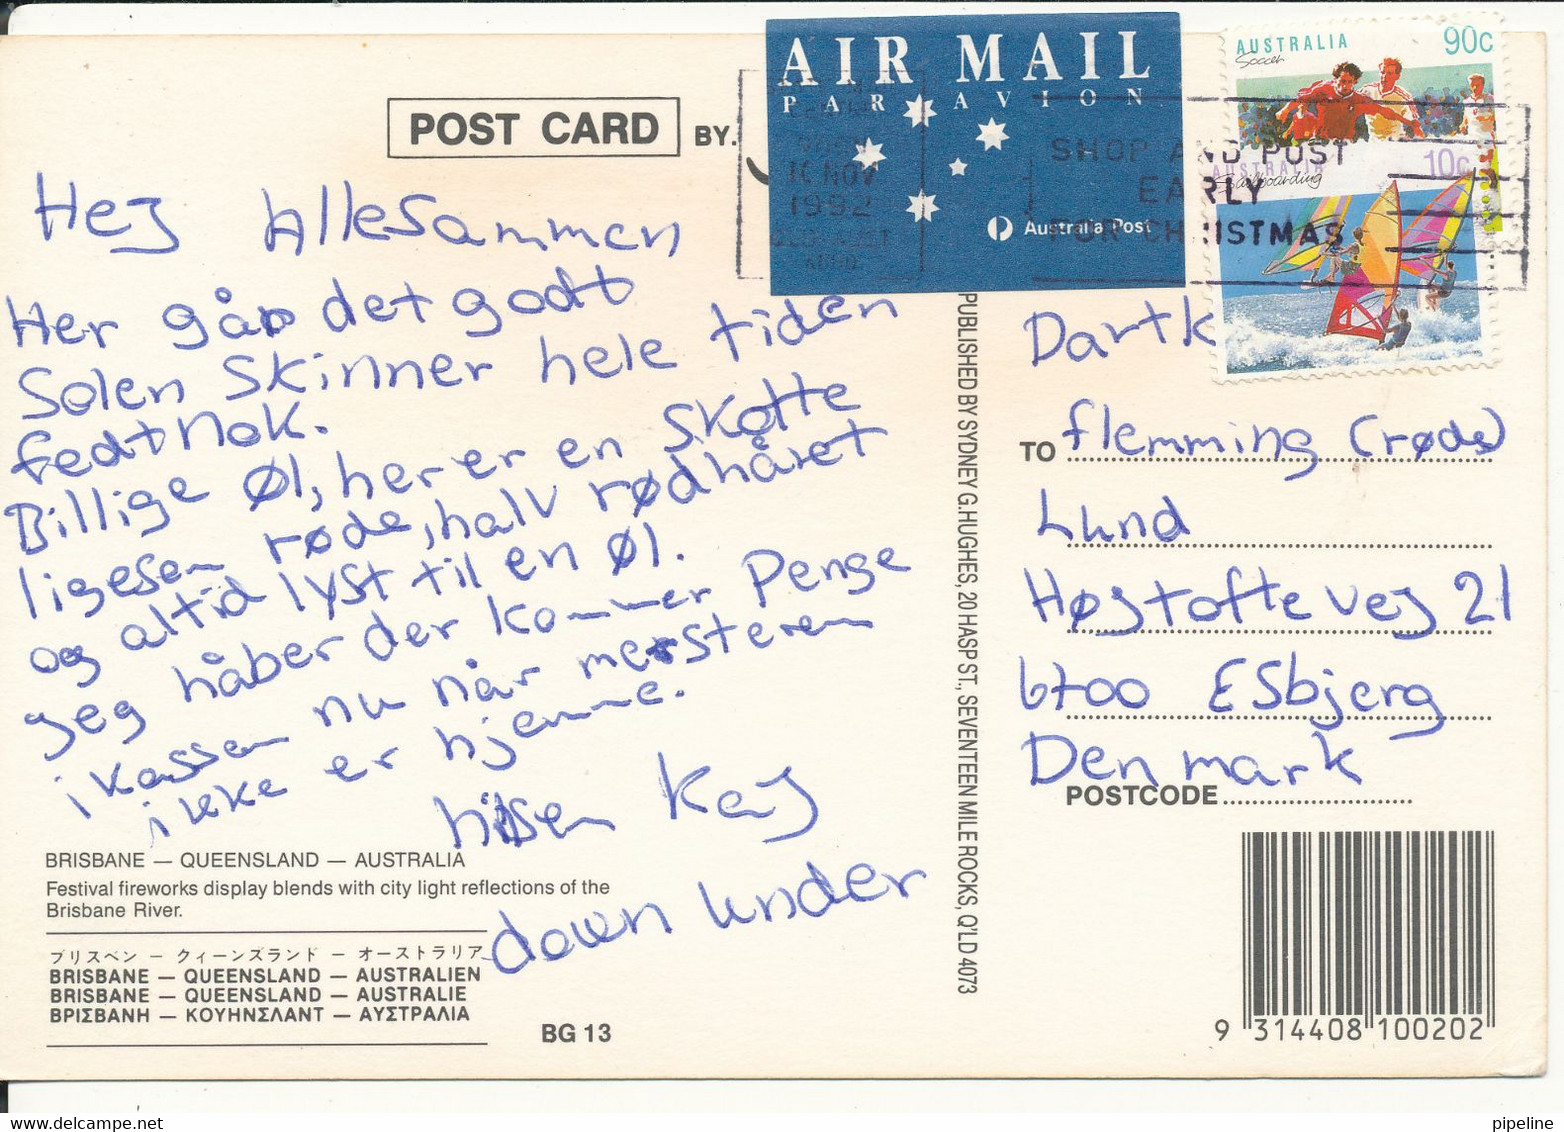 POST CARD BY.
AIR MAIL
PAR AVION
Australia Post
10 NOV
1992
SHOP AND POST
EARLY
FOR CHRISTMAS
AUSTRALIA 90c
Soccer
AUSTRALIA 10c
Sailboarding
Hej Allesammen
Her går det godt
Solen Skinner hele tiden
fedt Nok.
Billige Øl, her er en Skotte
ligesom røde, halv rødhåret
og altid lyst til en Øl.
Jeg håber der kommer Penge
i kassen nu når mesteren
ikke er hjemme.
hilsen Kaj
down under
BRISBANE — QUEENSLAND — AUSTRALIA
Festival fireworks display blends with city light reflections of the
Brisbane River.
ブリスベン － クィーンズランド － オーストラリア
BRISBANE — QUEENSLAND — AUSTRALIEN
BRISBANE — QUEENSLAND — AUSTRALIE
ΒΡΙΣΒΑΝΗ — ΚΟΥΗΝΣΛΑΝΤ — ΑΥΣΤΡΑΛΙΑ
BG 13
PUBLISHED BY SYDNEY G.HUGHES, 20 HASP ST., SEVENTEEN MILE ROCKS, Q'LD 4073
Dartk
TO flemming (røde)
Lund
Højtofte vej 21
6700 ESbjerg
Denmark
POSTCODE
9 314408 100202
pipeline